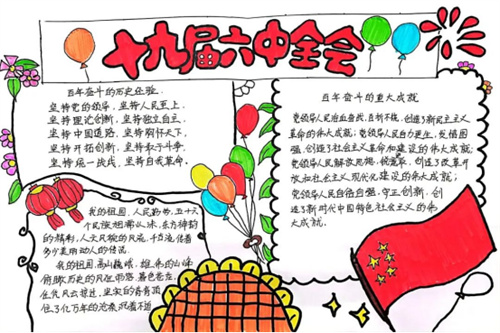 十九届六中全会
百年奋斗的历史经验
坚持党的领导,坚持人民至上,
坚持理论创新,坚持独立自主,
坚持中国道路,坚持胸怀天下,
坚持开拓创新,坚持敢于斗争
坚持统一战线,坚持自我革命。
百年奋斗的重大成就
党领导人民浴血奋战、百折不挠,创造了新民主主义
革命的伟大成就;党领导人民自力更生、发愤图
强,创造了社会主义革命和建设的伟大成就;
党领导人民解放思想、锐意进取,创造了改革开
放和社会主义现代化建设的伟大成就;
党领导人民自信自强、守正创新,创
造了新时代中国特色社会主义的伟
大成就。
我的祖国,人民勤劳,五十六
个民族相濡以沫,东方神韵
的精彩,人文风貌的风流,千百年流传着
多少美丽动人的传说。
我的祖国,高山巍峨,雄伟的山峰
俯瞰历史的风狂雨落,暮色苍茫,
任凭风云掠过,坚实的脊背顶
住了亿万年的沧桑,沉着不迫